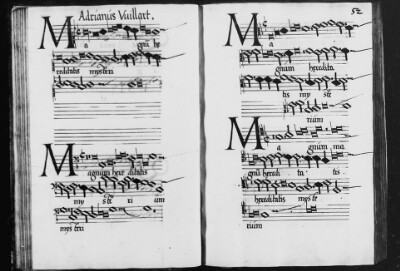 Adrianus Vuillart.
M a gnū he
reditatis mysteri
M agnum here ditatis
my ste ri um
mysteriū
52
M a
gnum heredita
tis my ste
rium
M a gnum ma
gnū heredi ta tis
hereditatis myste
rium